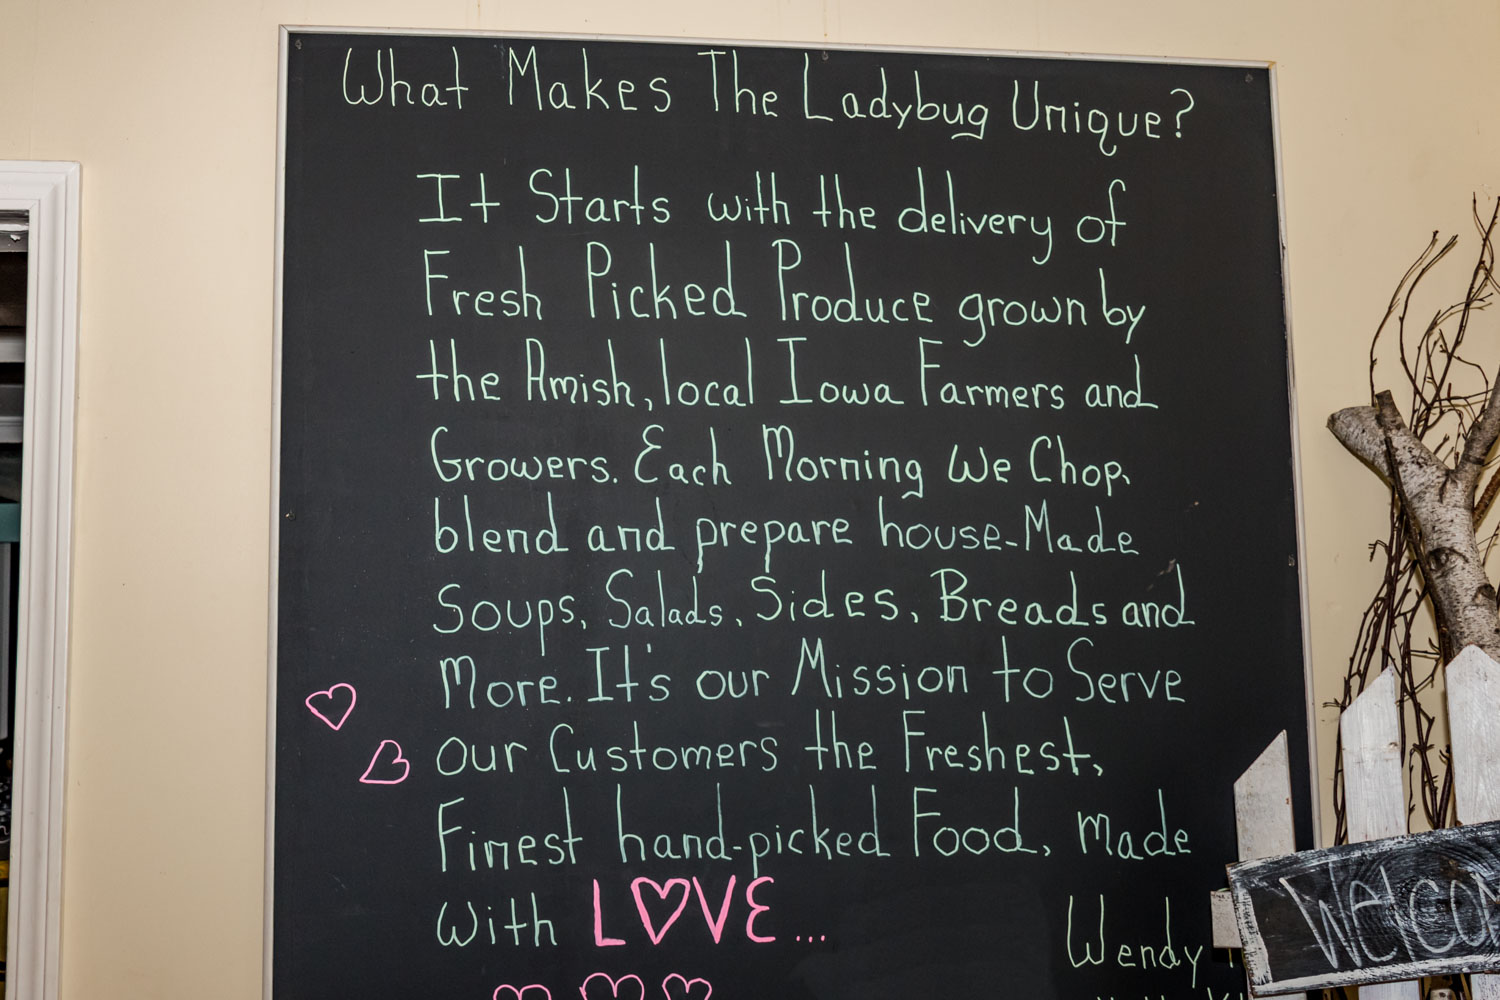 What Makes The Ladybug Unique?
It Starts with the delivery of
Fresh Picked Produce grown by
the Amish, local Iowa Farmers and
Growers. Each Morning We Chop,
blend and prepare house-Made
Soups, Salads, Sides, Breads and
More. It's our Mission to Serve
our Customers the Freshest,
Finest hand-picked Food, made
with LOVE...
Wendy
Welco